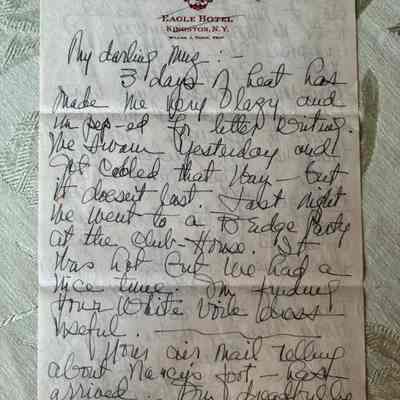 EAGLE HOTEL
KINGSTON, N.Y.
My darling Mug :-
3 days of heat has
made me very lazy and
un pep-ed for letter writing.
We swam yesterday and
got cooled that way - but
it doesn't last. Last night
we went to a Bridge Party
at the Club-House. It
was hot but we had a
nice time. I'm finding
your White voile dress
useful.
Your air mail telling
about Nancy's foot, - has
arrived. I'm dreadfully